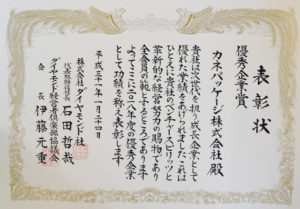 表彰状
優秀企業賞
カネパッケージ株式会社 殿
貴社は次世代を担う成長企業として
優れた業績をあげられました これは
ひとえに貴社のベンチャースピリッツと
革新的な経営努力の賜物であり
全会員の範とするところであります
よってここに二〇一八年度の優秀企業
として功績を称え表彰します
平成三十一年一月二十四日
株式会社ダイヤモンド社
代表取締役社長 石田哲哉
ダイヤモンド経営者倶楽部協議会
会長 伊藤元重